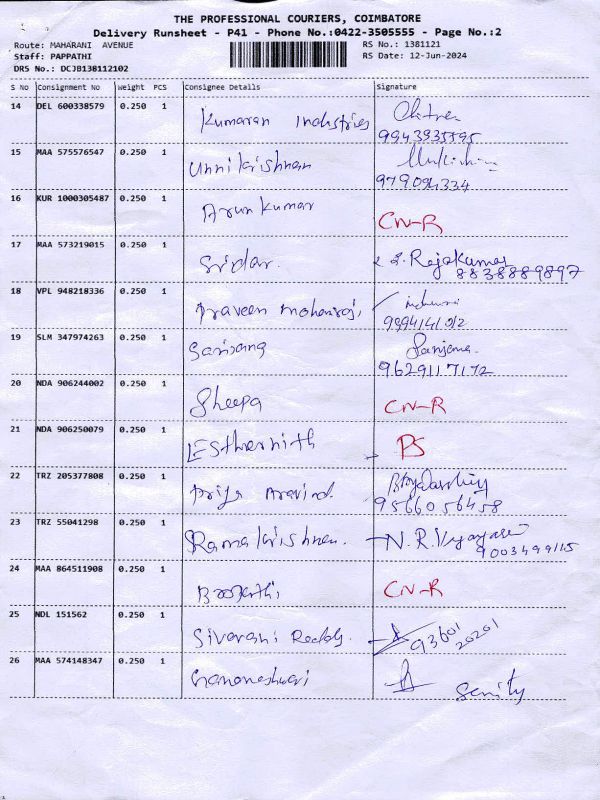 THE PROFESSIONAL COURIERS, COIMBATORE
Delivery Runsheet - P41 - Phone No.:0422-3505555 - Page No.:2
Route: MAHARANI AVENUE RS No.: 1381121
Staff: PAPPATHI RS Date: 12-Jun-2024
DRS No.: DCJB138112102
S No Consignment No Weight PCS Consignee Details Signature
14 DEL 600338579 0.250 1 Kumaran Industries
9943935595
15 MAA 575576547 0.250 1 Unnikrishnan
979094334
16 KUR 1000305487 0.250 1 Arun Kumar CN-R
17 MAA 573219015 0.250 1 Sridar. Rajakumar
8838889897
18 VPL 948218336 0.250 1 Praveen
9994141012
19 SLM 347974263 0.250 1 Sanjana.
9629117172
20 NDA 906244002 0.250 1 Sheepa CN-R
21 NDA 906250079 0.250 1 PS
22 TRZ 205377808 0.250 1 Priya Aravind.
9566056458
23 TRZ 55041298 0.250 1 Ramakrishnan. N.R.
9003499115
24 MAA 864511908 0.250 1 CN-R
25 NDL 151562 0.250 1 Sivarani Reddy. 93601
20201
26 MAA 574148347 0.250 1